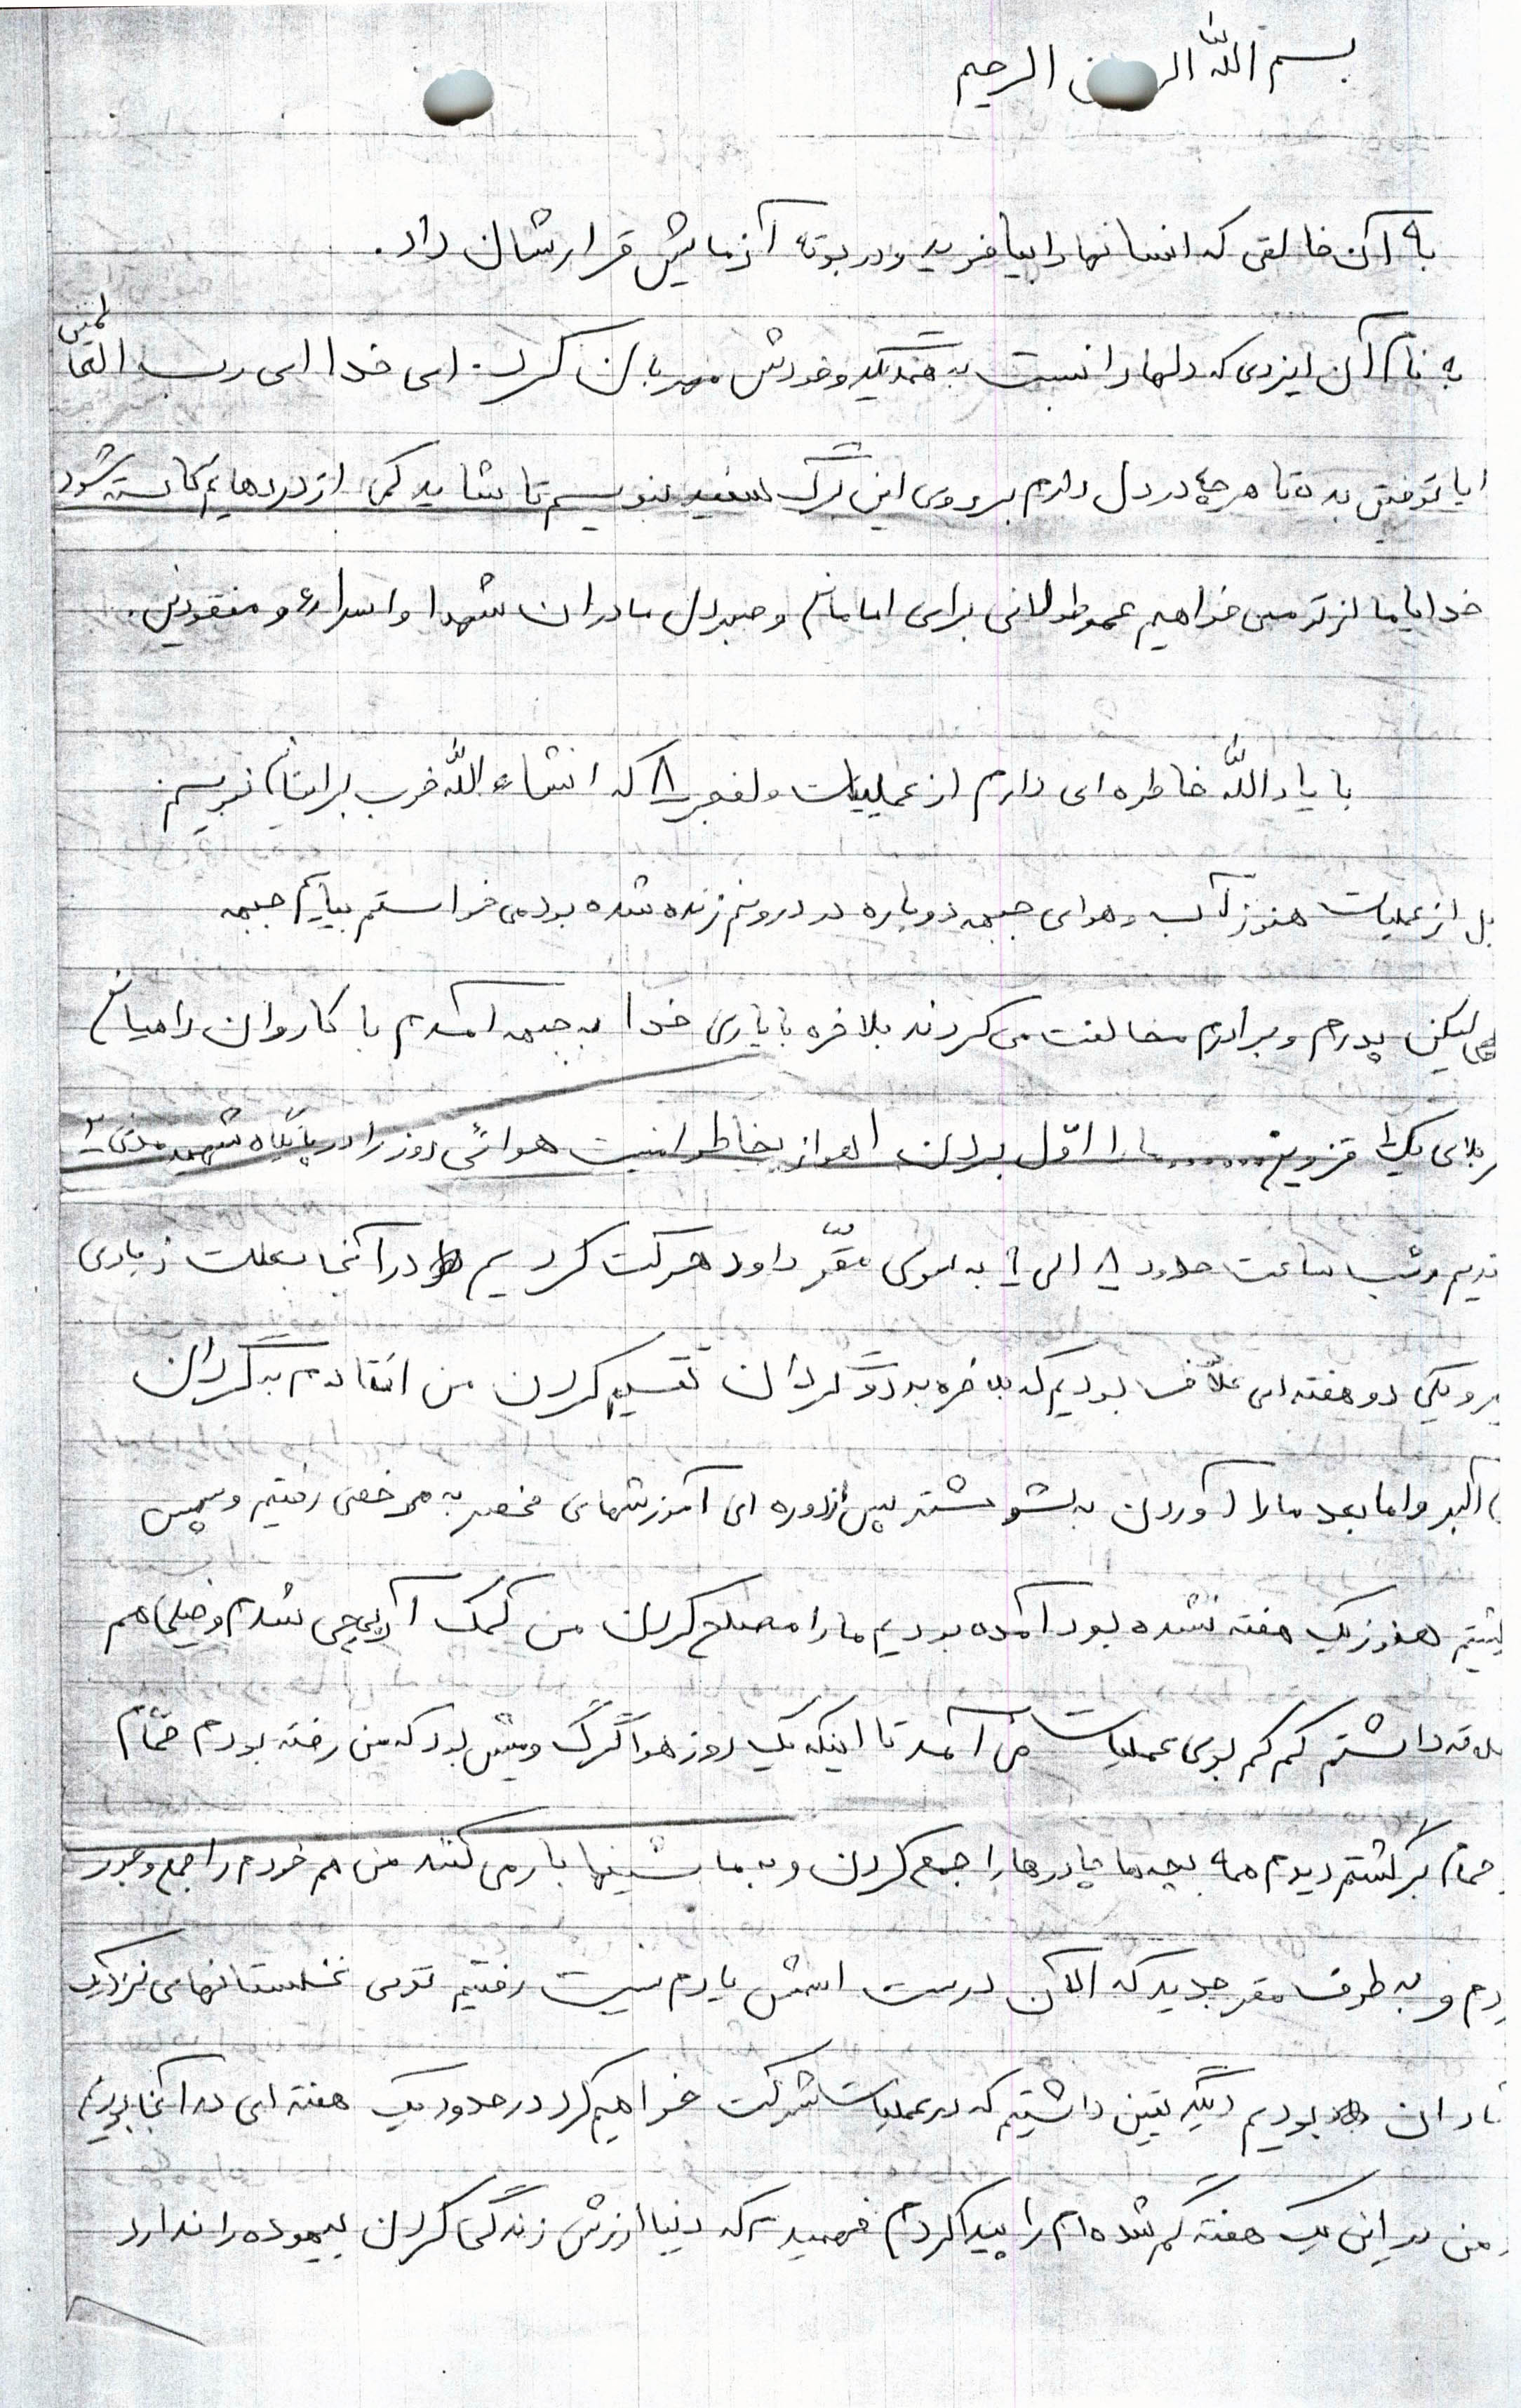 بسم الله الر ن الرحیم
به آن خالقی که انسانها را بیافرید و در بوته آزمایش قرارشان داد.
به نام آن ایزدی که دلها را نسبت به همدیگر و خودش مهربان کرد. ای خدا ای رب العالمین
ایا توفیق بده تا هرچه در دل دارم بر روی این برگ سفید بنویسم تا شاید کمی از دردهایم کاسته شود
خدایا ما از تو می خواهیم عمر طولانی برای امامام و صبر دل مادران شهدا و اسراء و مفقودین.
با یاد الله خاطره ای دارم از عملیات ولفجر ۸ که انشاء الله خوب برایتان بنویسم
بل از عملیات هنوز آب و هوای جبهه دوباره در درونم زنده شده بود می خواستم بیایم جبهه
لیکن پدرم و برادرم مخالفت می کردند بلاخره با یاری خدا به جبهه آمدم با کاروان راهیان
ربلای یک قزوین....... ما را اول بردن اهواز بخاطر امنیت هوائی روز را در پایگاه شهید مدنی
ندیم و شب ساعت حدود ۸ الی ۹ به سوی مقر داود هرکت کردیم در آنجا بعلت زیادی
یرو یکی دو هفته ای علاف بودیم که بلاخره به دو گردان تقسیم کردن من افتادم به گردان
اکبر و اما بعد ما را آوردن به شوشتر پس از دوره ای آموزشهای مختصر به مرخصی رفتیم و سپس
هنوز یک هفته نشده بود آمده بودیم ما را مصلح کردن من کمک آرپیچی شدم و خیلی هم
لاقه داشتم کم کم بوی عملیات می آمد تا اینکه یک روز هوا گرگ و میش بود که من رفته بودم حمام
حمام برگشتم دیدم همه بچه ها چادرها را جمع کردن و به ماشینها بار می کنند من هم خودم را جمع و جور
ردم و به طرف مقر جدید که الآن درست اسمش یادم نیست رفتیم توی نخلستانهای نزدیک
بودیم دیگر یقین داشتیم که در عملیات شرکت خواهیم کرد در حدود یک هفته ای در آنجا بودیم
من در این یک هفته گم شده ام را پیدا کردم فهمیدم که دنیا ارزش زندگی کردن بیهوده را ندارد